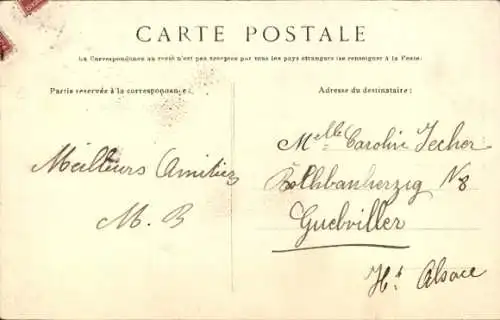 CARTE POSTALE
La Correspondance au recto n'est pas acceptée par tous les pays étrangers (se renseigner à la Poste)
Partie réservée à la correspondance:
Adresse du destinataire:
Meilleurs Amitiés
M. B
Melle Caroline Jecher
N 8
Guebviller
Ht Alsace